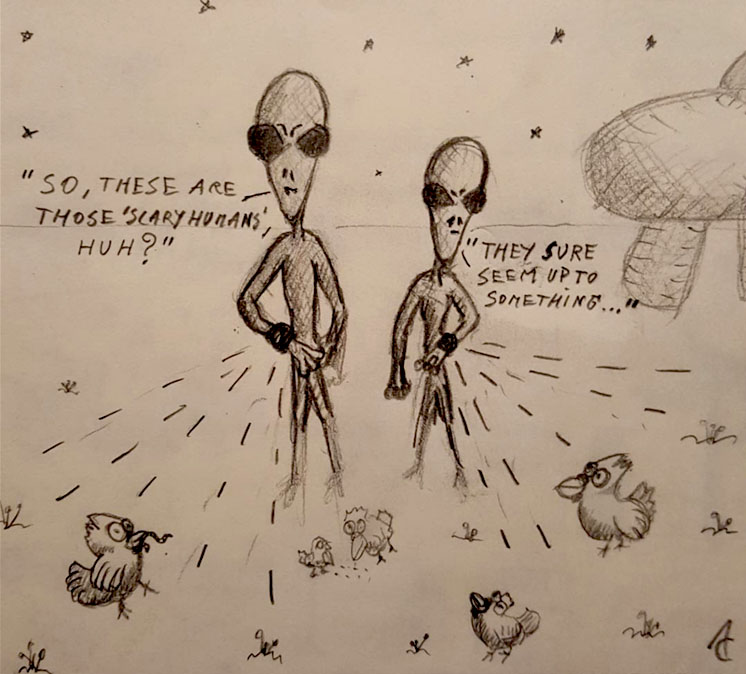 "SO, THESE ARE
THOSE 'SCARY HUMANS',
HUH?"
"THEY SURE
SEEM UP TO
SOMETHING..."